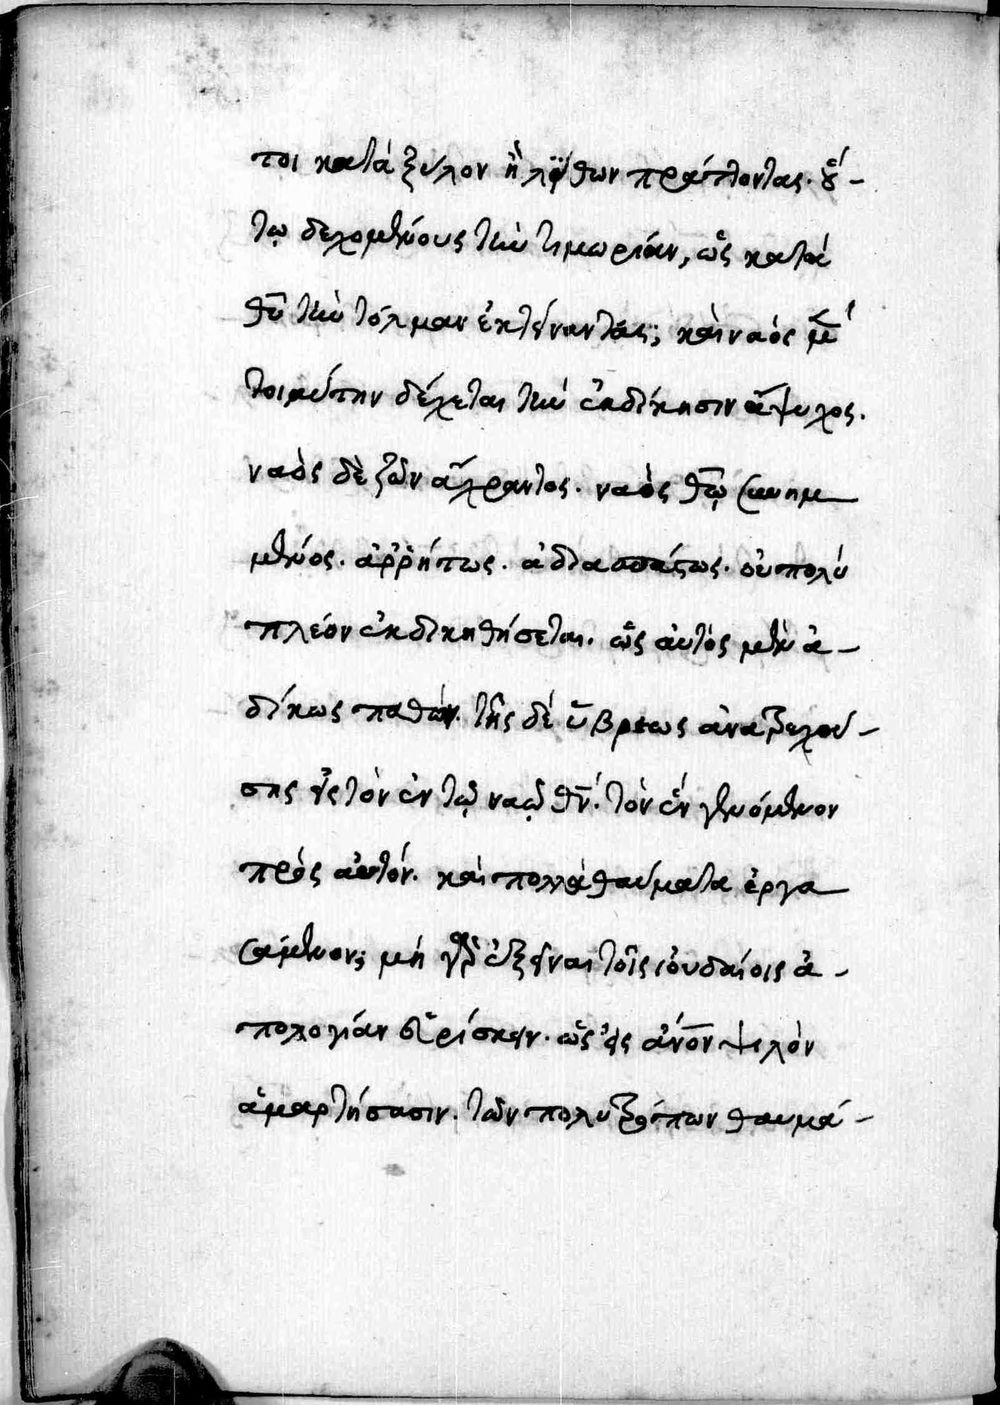 τοι κατὰ ξύλον ἢ λίθων πράττοντας. οὕ-
τω δεχομένους τὴν τιμωρίαν, ὡς κατὰ
θυ τὴν τόλμαν ἐκτείναντας; καὶ ναὸς μὲν
τοιαύτην δέχεται τὴν ἐκδίκησιν ἄψυχος.
ναὸς δὲ ζῶν ἄχραντος. ναὸς θω συνημ
μένος. ἀῤῥήτως. ἀδιασπάστως. οὐ πολὺ
πλέον ἐκδικηθήσεται. ὡς αὐτὸς μὲν ἀ-
δίκως παθὼν. τῆς δὲ ὕβρεως ἀνατρεχού-
σης εἰς τὸν ἐν τῷ ναῷ θν. τὸν ἓν γενόμενον
πρὸς αὐτόν. καὶ πολλὰ θαύματα ἐργα
σάμενον; μὴ γὰρ ἐξεῖναι τοῖς ἰουδαίοις ἀ-
πολογίαν εὑρίσκειν. ὡς εἰς ἀνον ψιλὸν
ἁμαρτήσασιν. τῶν πολυτρόπων θαυμά-